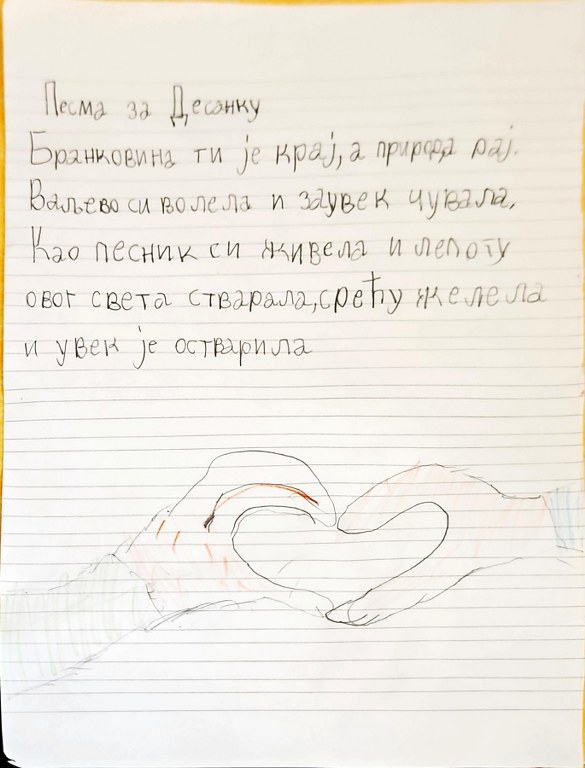 Песма за Десанку
Бранковина ти је крај, а природа рај.
Ваљево си волела и заувек чувала.
Као песник си живела и лепоту
овог света стварала, срећу желела
и увек је остварила